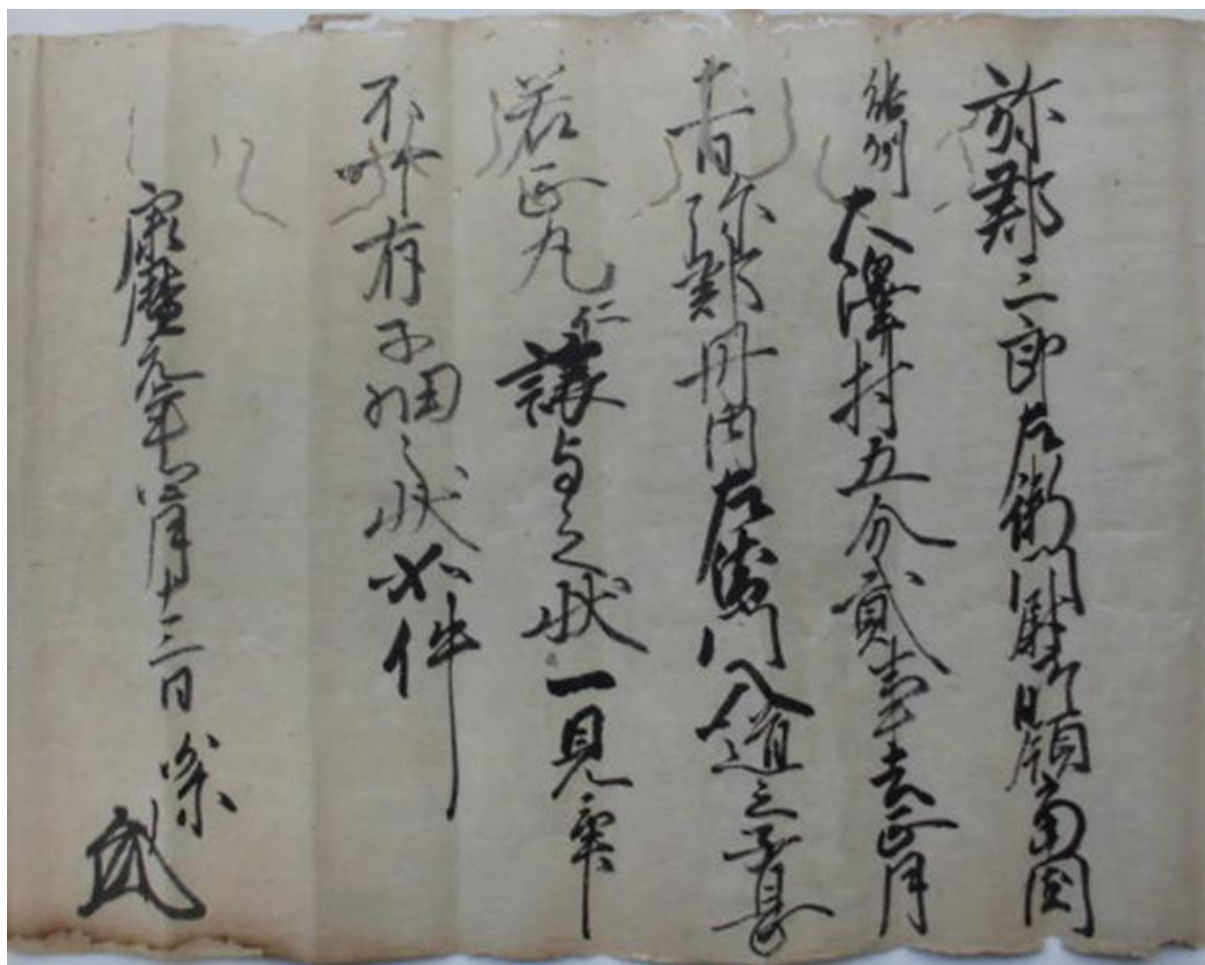 弥郡三郎左衛門尉領當国
能州大澤村五分貳事去正月
弥郡丹内左衛門入道之子息
若正丸仁譲与之状一見畢
不可有子細之状如件
康暦元年月十三日